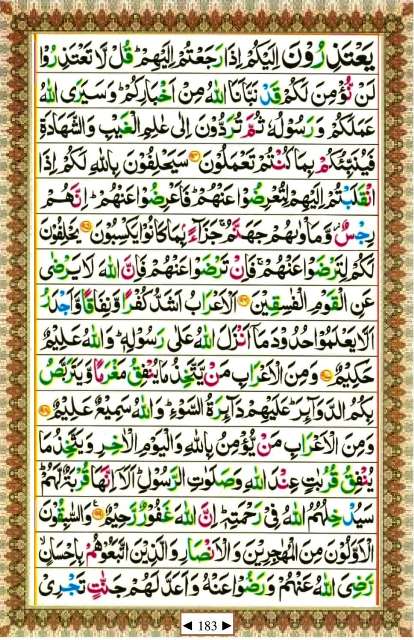 يَعْتَذِرُوْنَ اِلَيْكُمْ اِذَا رَجَعْتُمْ اِلَيْهِمْ ؕ قُلْ لَّا تَعْتَذِرُوْا
لَنْ نُّؤْمِنَ لَكُمْ قَدْ نَبَّاَنَا اللّٰهُ مِنْ اَخْبَارِكُمْ ؕ وَ سَيَرَى اللّٰهُ
عَمَلَكُمْ وَ رَسُوْلُهٗ ثُمَّ تُرَدُّوْنَ اِلٰى عٰلِمِ الْغَيْبِ وَ الشَّهَادَةِ
فَيُنَبِّئُكُمْ بِمَا كُنْتُمْ تَعْمَلُوْنَ ۹۴ سَيَحْلِفُوْنَ بِاللّٰهِ لَكُمْ اِذَا
انْقَلَبْتُمْ اِلَيْهِمْ لِتُعْرِضُوْا عَنْهُمْ ؕ فَاَعْرِضُوْا عَنْهُمْ ؕ اِنَّهُمْ
رِجْسٌ ؗ وَّ مَاْوٰىهُمْ جَهَنَّمُ ۚ جَزَآءًۢ بِمَا كَانُوْا يَكْسِبُوْنَ ۹۵ يَحْلِفُوْنَ
لَكُمْ لِتَرْضَوْا عَنْهُمْ ۚ فَاِنْ تَرْضَوْا عَنْهُمْ فَاِنَّ اللّٰهَ لَا يَرْضٰى
عَنِ الْقَوْمِ الْفٰسِقِيْنَ ۹۶ اَلْاَعْرَابُ اَشَدُّ كُفْرًا وَّ نِفَاقًا وَّ اَجْدَرُ
اَلَّا يَعْلَمُوْا حُدُوْدَ مَاۤ اَنْزَلَ اللّٰهُ عَلٰى رَسُوْلِهٖ ؕ وَ اللّٰهُ عَلِيْمٌ
حَكِيْمٌ ۹۷ وَ مِنَ الْاَعْرَابِ مَنْ يَّتَّخِذُ مَا يُنْفِقُ مَغْرَمًا وَّ يَتَرَبَّصُ
بِكُمُ الدَّوَآئِرَ ؕ عَلَيْهِمْ دَآئِرَةُ السَّوْءِ ؕ وَ اللّٰهُ سَمِيْعٌ عَلِيْمٌ ۹۸
وَ مِنَ الْاَعْرَابِ مَنْ يُّؤْمِنُ بِاللّٰهِ وَ الْيَوْمِ الْاٰخِرِ وَ يَتَّخِذُ مَا
يُنْفِقُ قُرُبٰتٍ عِنْدَ اللّٰهِ وَ صَلَوٰتِ الرَّسُوْلِ ؕ اَلَاۤ اِنَّهَا قُرْبَةٌ لَّهُمْ ؕ
سَيُدْخِلُهُمُ اللّٰهُ فِيْ رَحْمَتِهٖ ؕ اِنَّ اللّٰهَ غَفُوْرٌ رَّحِيْمٌ ۹۹ وَ السّٰبِقُوْنَ
الْاَوَّلُوْنَ مِنَ الْمُهٰجِرِيْنَ وَ الْاَنْصَارِ وَ الَّذِيْنَ اتَّبَعُوْهُمْ بِاِحْسَانٍ ۙ
رَّضِيَ اللّٰهُ عَنْهُمْ وَ رَضُوْا عَنْهُ وَ اَعَدَّ لَهُمْ جَنّٰتٍ تَجْرِيْ
183